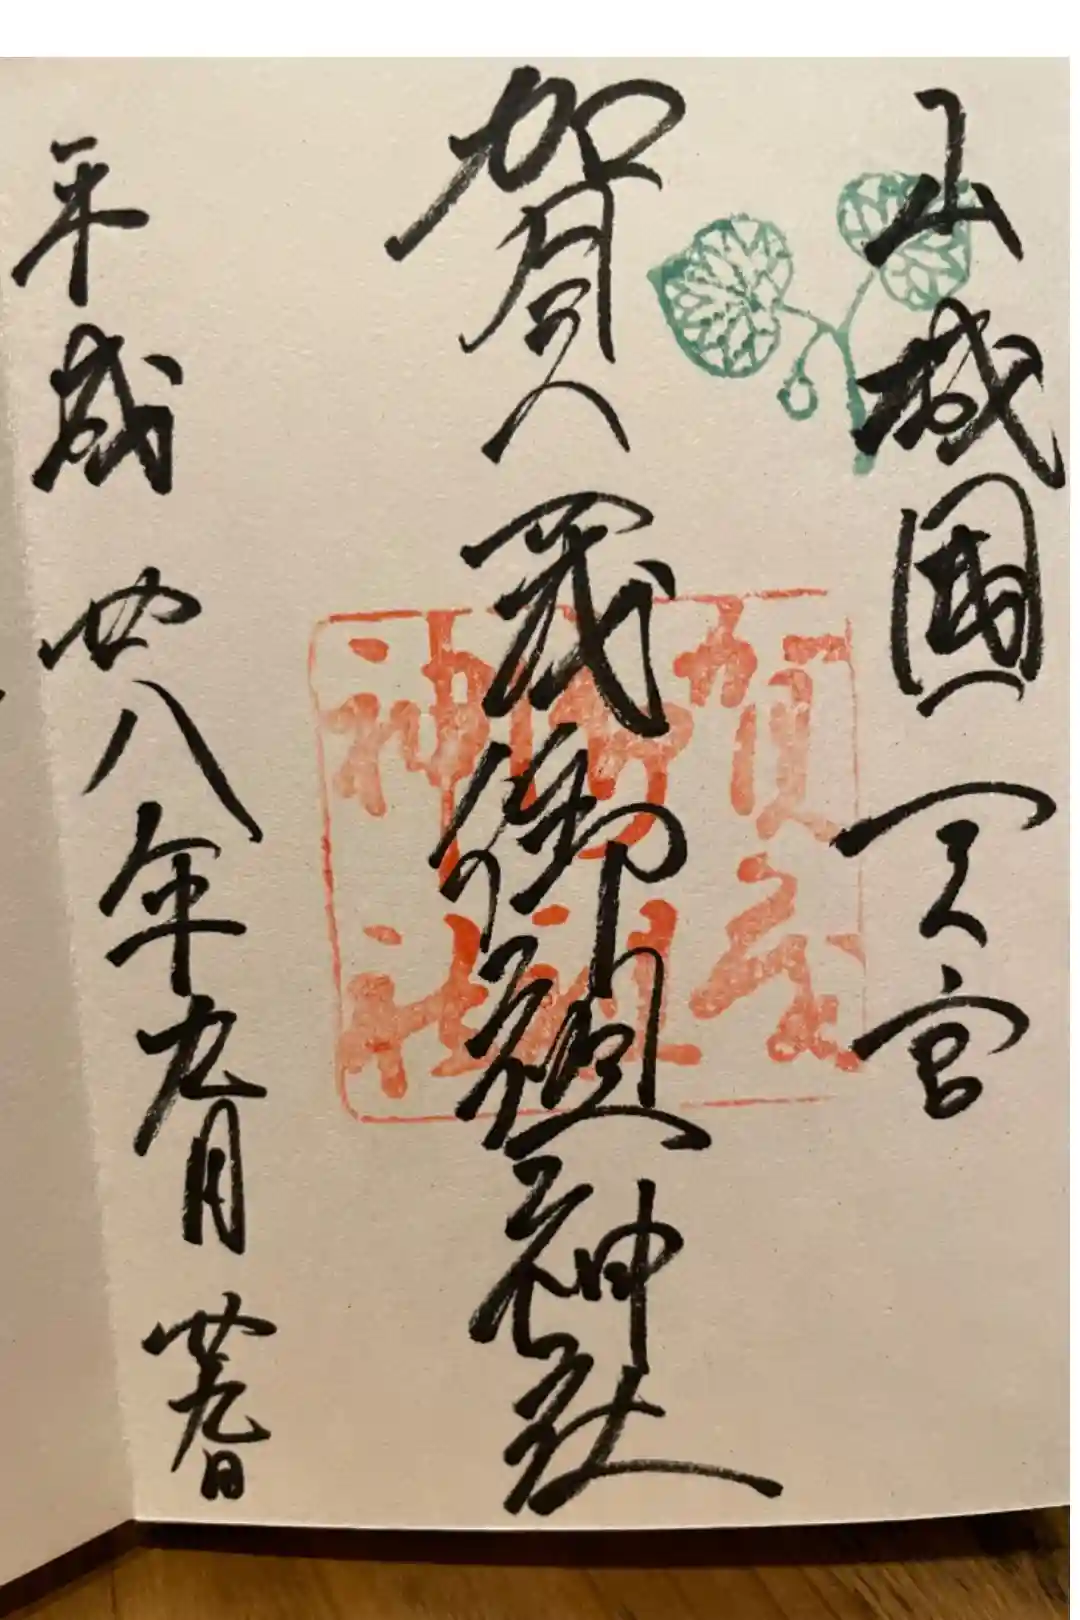 山城國一之宮
賀茂御祖神社
平成廿八年九月廿九日
賀茂
御祖
神社